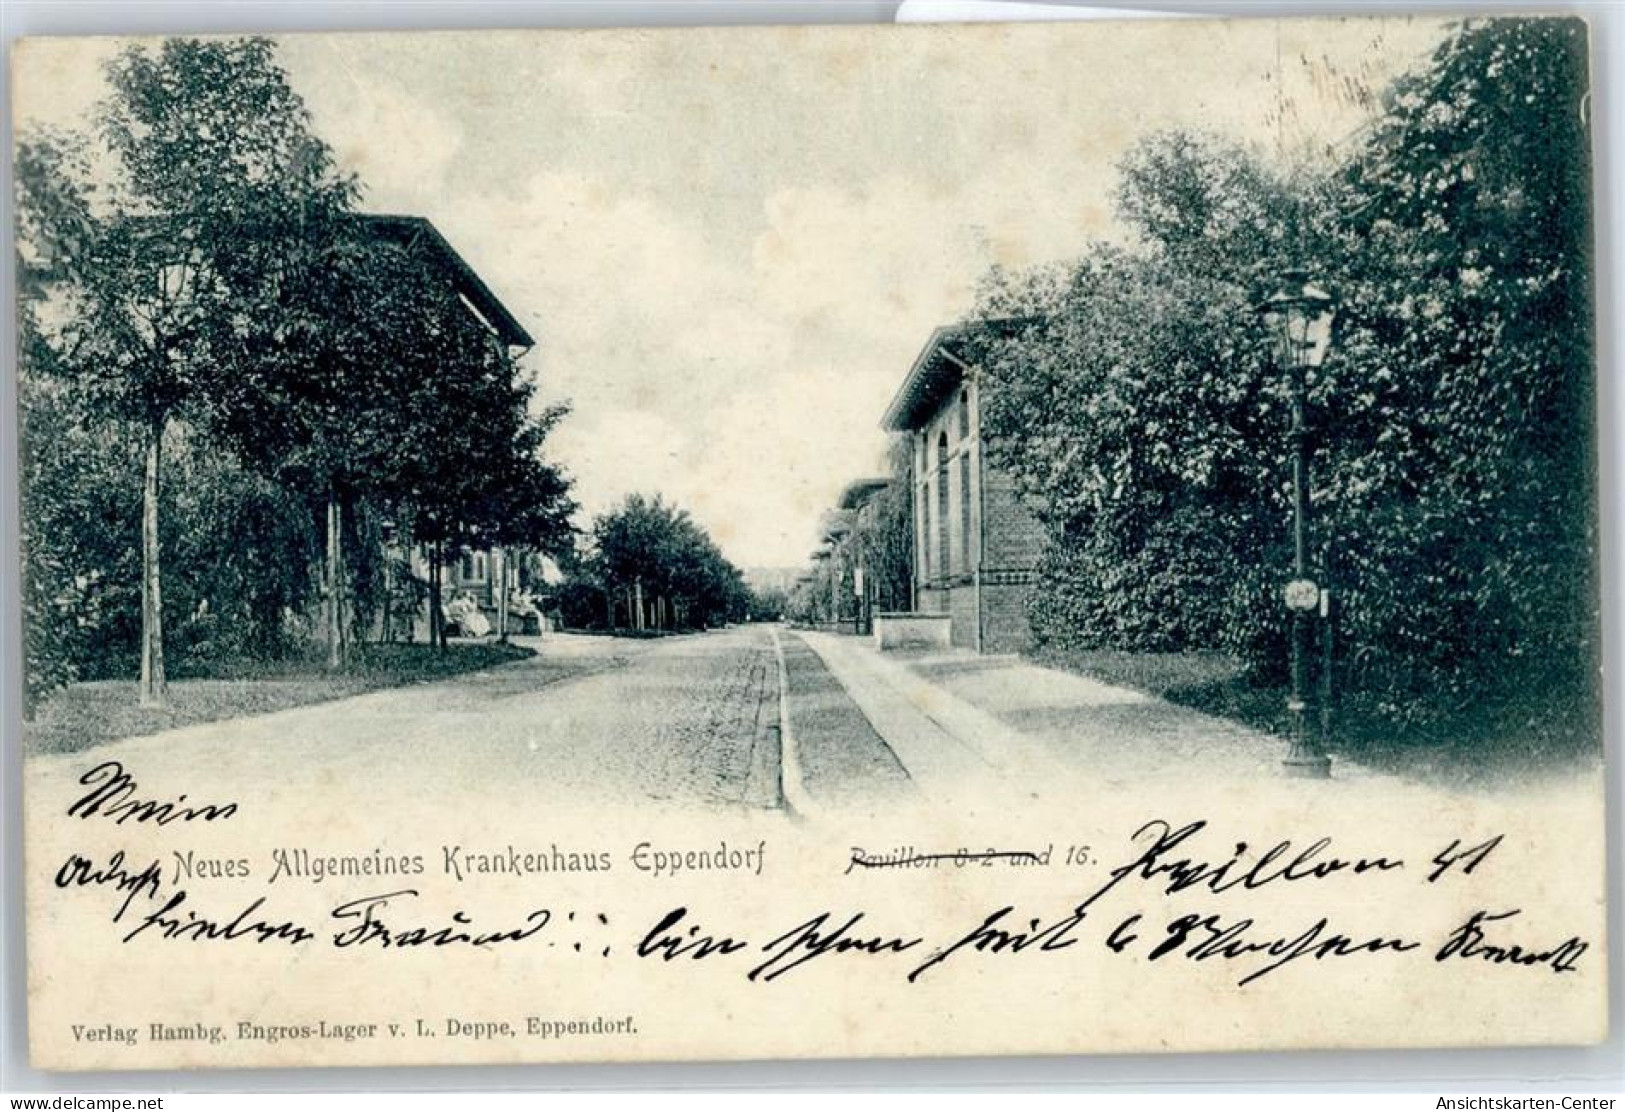 Mein
Neues Allgemeines Krankenhaus Eppendorf Pavillon 8-2 und 16. Pavillon 41
lieber Freund bin schon seit 6 Wochen Krank
Verlag Hambg. Engros-Lager v. L. Deppe, Eppendorf.
delcampe.net
Ansichtskarten-Center